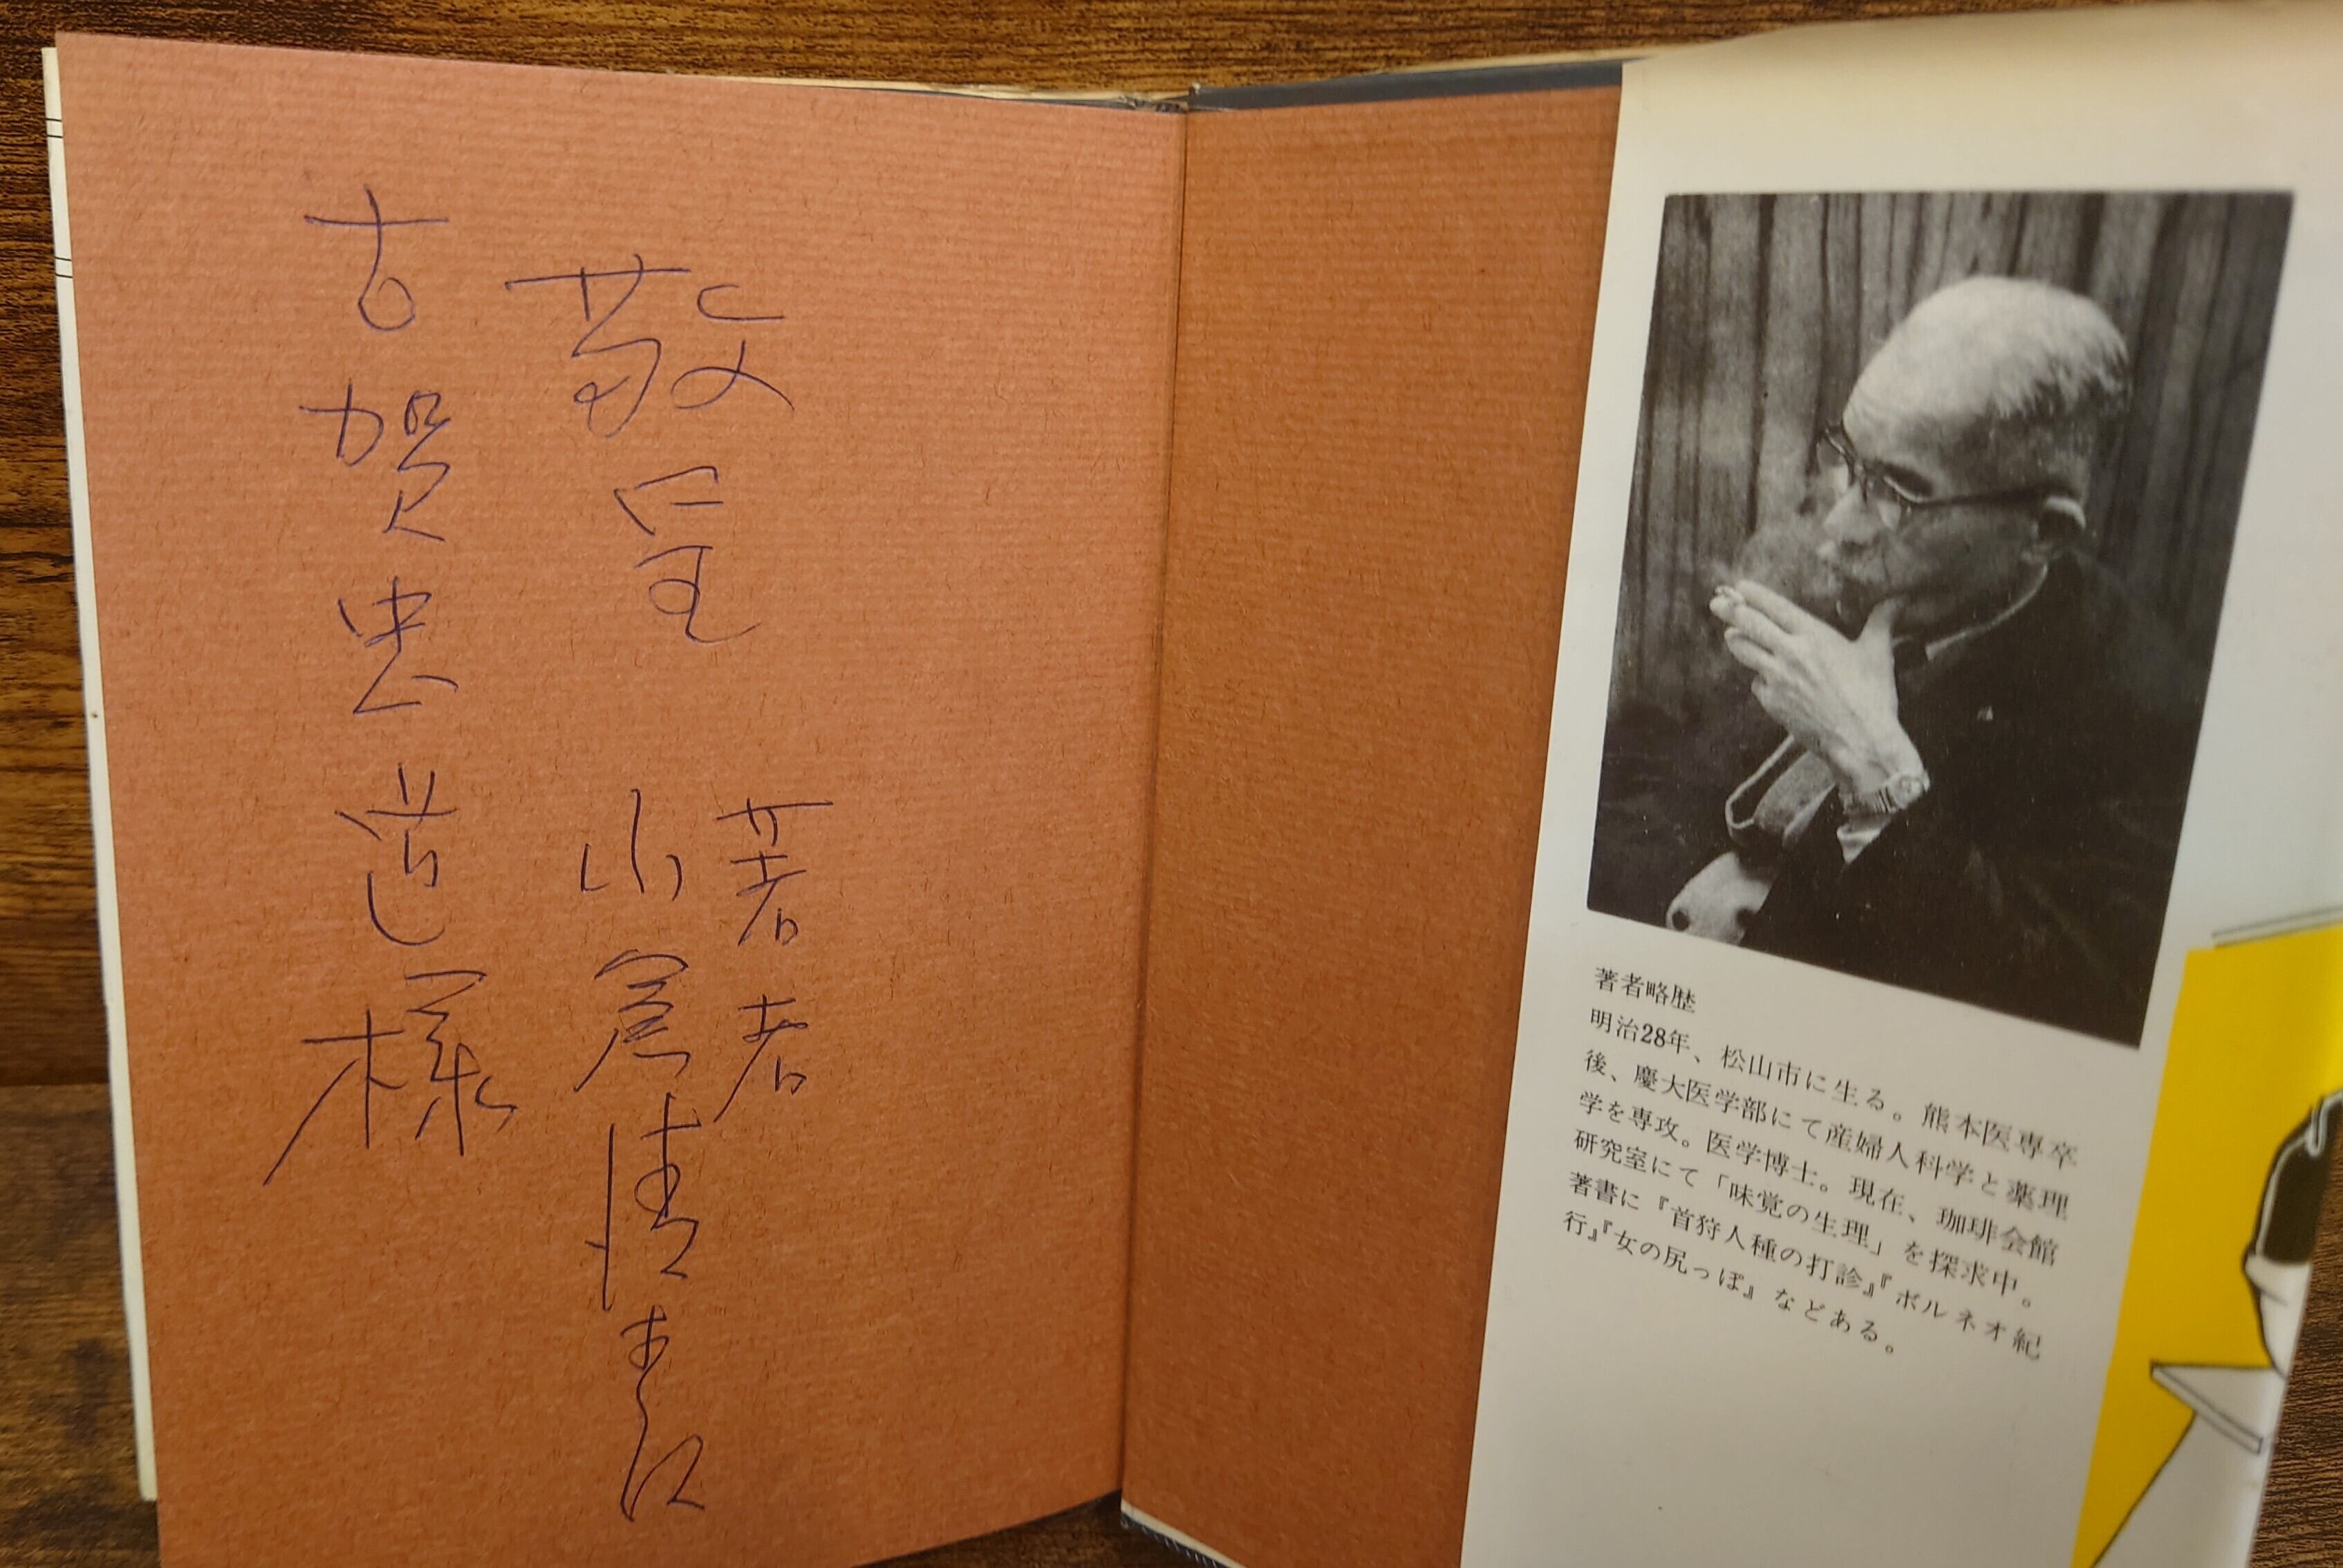 敬呈
著者
小倉清太郎
古賀忠道様
著者略歴
明治28年、松山市に生る。熊本医専卒
後、慶大医学部にて産婦人科学と薬理
学を専攻。医学博士。現在、珈琲会館
研究室にて「味覚の生理」を探求中。
著書に『首狩人種の打診』『ボルネオ紀
行』『女の尻っぽ』などある。